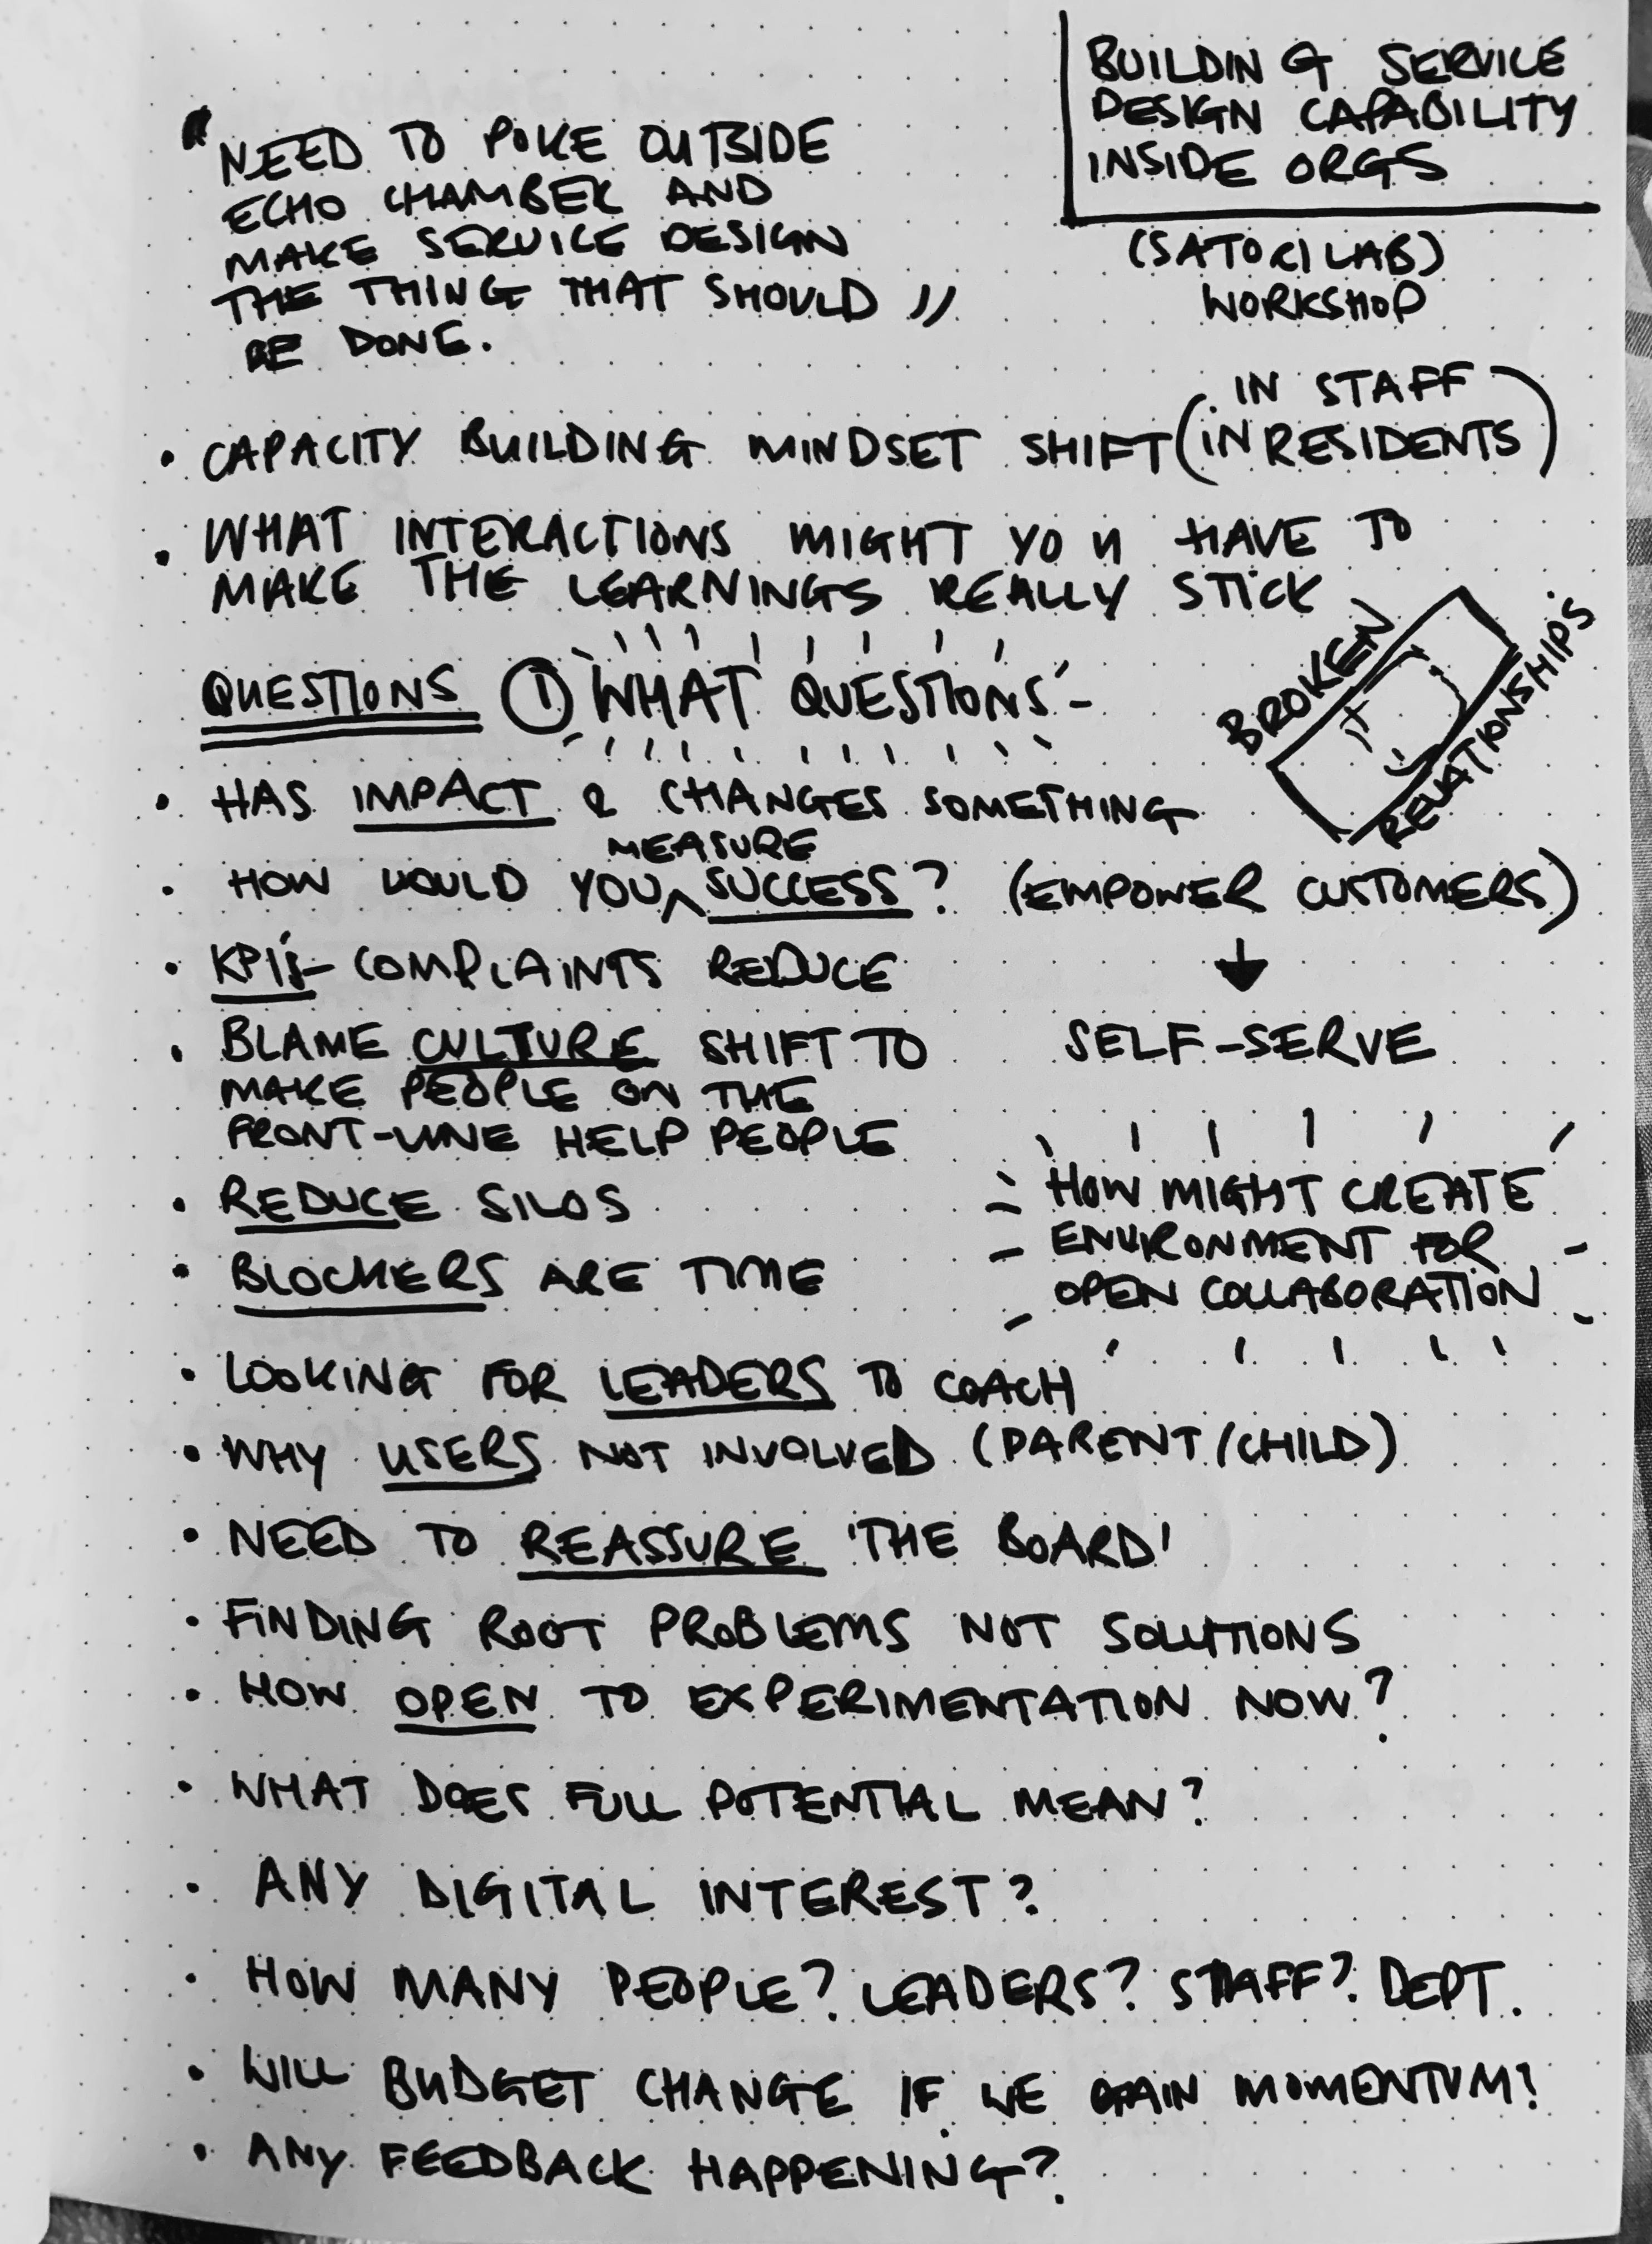 BUILDING SERVICE
DESIGN CAPABILITY
INSIDE ORGS
(SATORI LAB)
WORKSHOP
"NEED TO POKE OUTSIDE
ECHO CHAMBER AND
MAKE SERVICE DESIGN
THE THING THAT SHOULD "
BE DONE.
• CAPACITY BUILDING MINDSET SHIFT (IN STAFF
IN RESIDENTS)
• WHAT INTERACTIONS MIGHT YOU HAVE TO
MAKE THE LEARNINGS REALLY STICK
BROKEN
RELATIONSHIPS
QUESTIONS ① WHAT QUESTIONS
• HAS IMPACT & CHANGES SOMETHING
• HOW WOULD YOU MEASURE SUCCESS? (EMPOWER CUSTOMERS)
↓
SELF-SERVE
• KPI's - COMPLAINTS REDUCE
• BLAME CULTURE SHIFT TO
MAKE PEOPLE ON THE
FRONT-LINE HELP PEOPLE
• REDUCE SILOS
• BLOCKERS ARE TIME
HOW MIGHT CREATE
ENVIRONMENT FOR
OPEN COLLABORATION
• LOOKING FOR LEADERS TO COACH
• WHY USERS NOT INVOLVED (PARENT/CHILD)
• NEED TO REASSURE 'THE BOARD'
• FINDING ROOT PROBLEMS NOT SOLUTIONS
• HOW OPEN TO EXPERIMENTATION NOW?
• WHAT DOES FULL POTENTIAL MEAN?
• ANY DIGITAL INTEREST?
• HOW MANY PEOPLE? LEADERS? STAFF? DEPT.
• WILL BUDGET CHANGE IF WE GAIN MOMENTUM?
• ANY FEEDBACK HAPPENING?